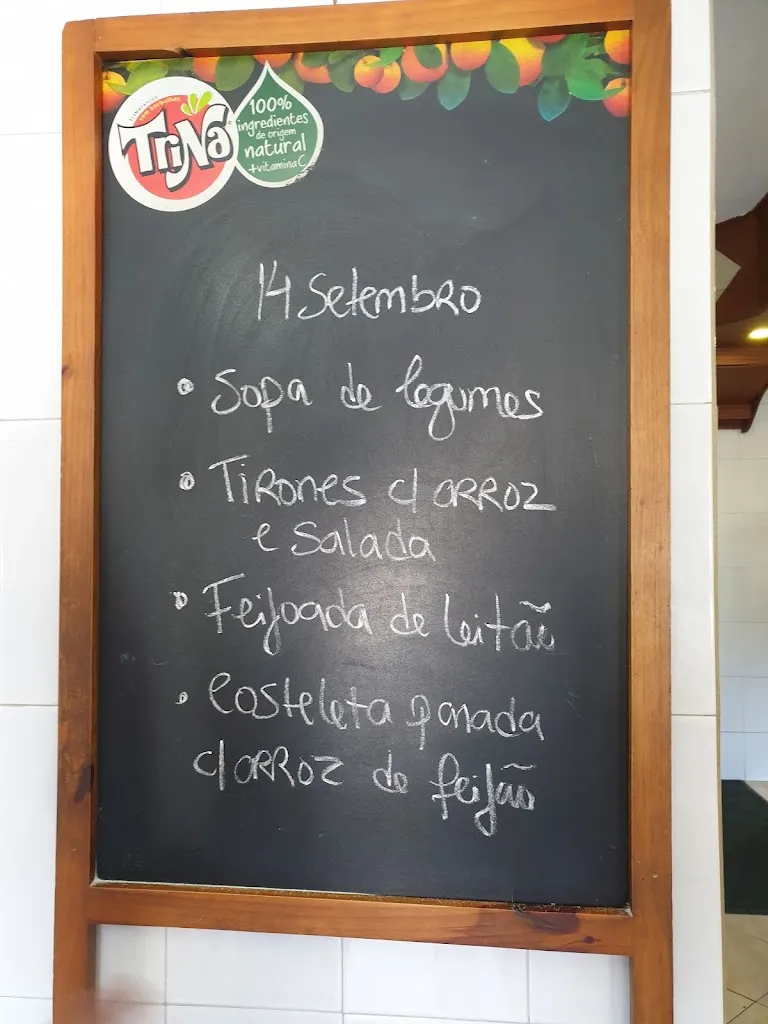 TriNa
100%
ingredientes
de origem
natural
+vitamina C
14 Setembro
• Sopa de legumes
• TIRONES c/ ARROZ
e Salada
• Feijoada de leitão
• Costeleta panada
c/ ARROZ de feijão